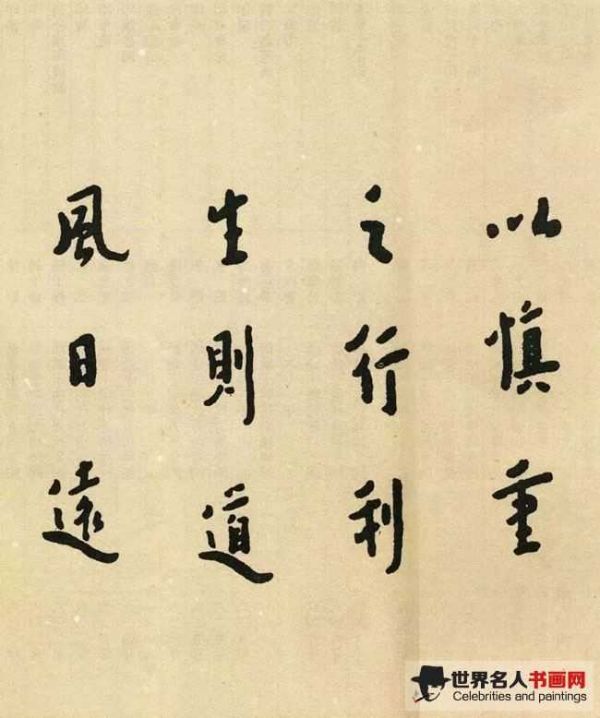 以慎重
之行利
生則道
風日遠
世界名人书画网
Celebrities and paintings